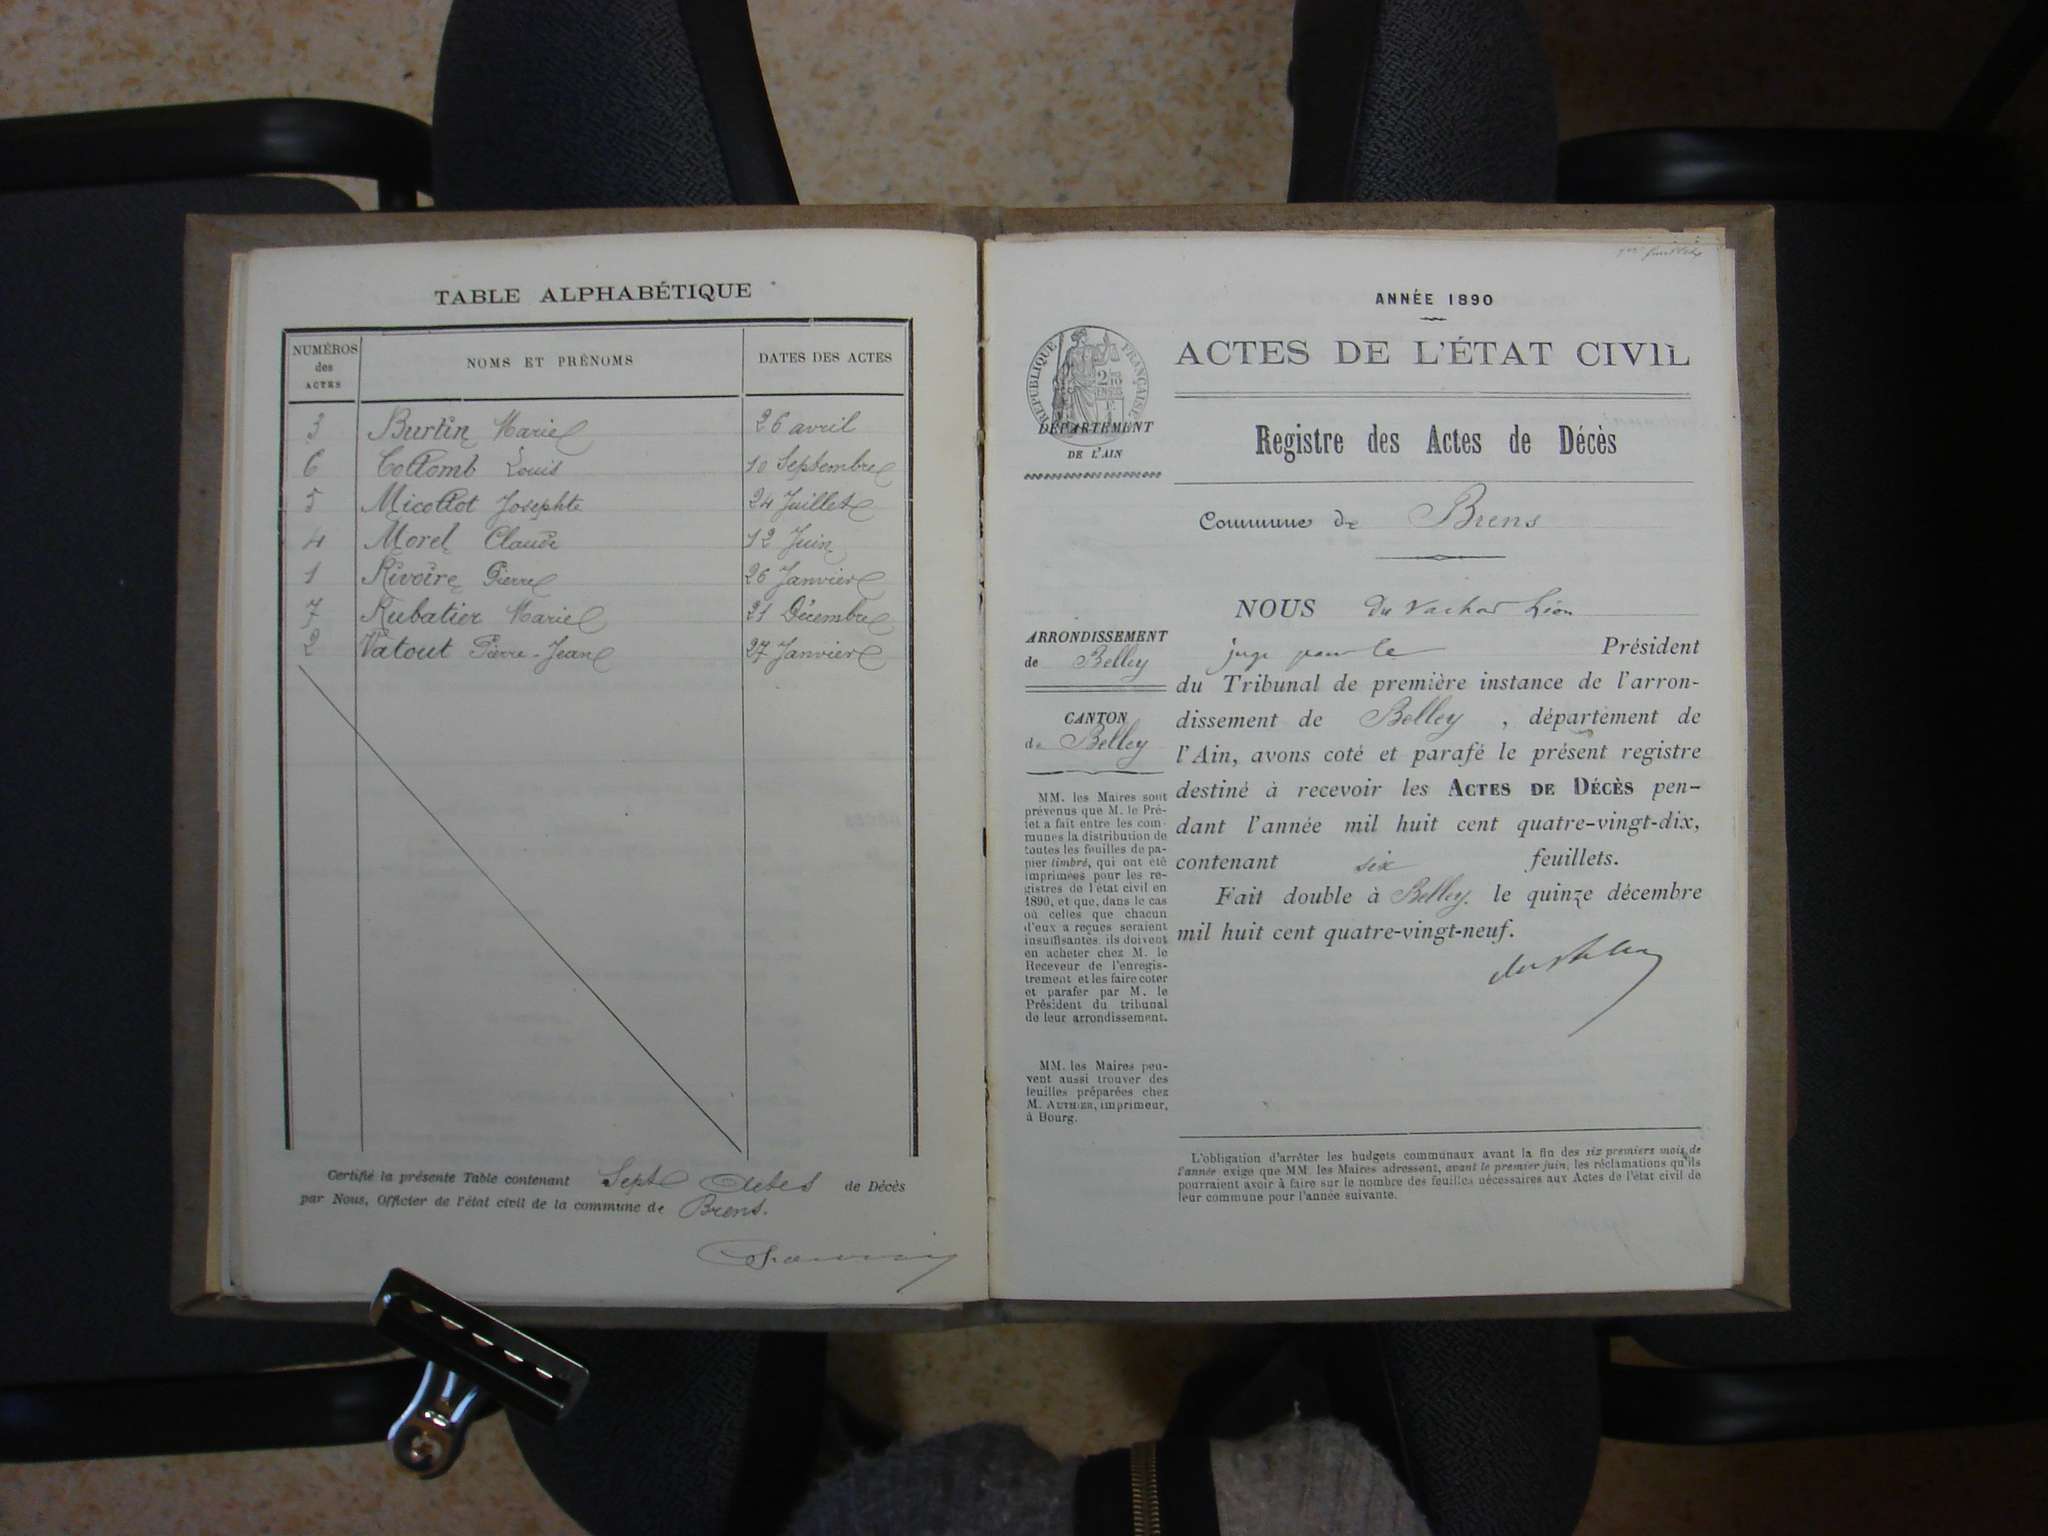 TABLE ALPHABÉTIQUE
NUMÉROS des ACTES
NOMS ET PRÉNOMS
DATES DES ACTES
3 Burtin Marie 26 avril
6 Collomb Louis 10 Septembre
5 Micollot Josephte 24 Juillet
4 Morel Claude 12 Juin
1 Rivoire Pierre 26 Janvier
7 Rubatier Marie 21 Décembre
2 Vatout Pierre-Jean 27 Janvier
Certifié la présente Table contenant Sept Actes de Décès
par Nous, Officier de l'état civil de la commune de Brens.
ANNÉE 1890
RÉPUBLIQUE FRANÇAISE
DÉPARTEMENT
DE L'AIN
ACTES DE L'ÉTAT CIVIL
Registre des Actes de Décès
Commune de Brens
ARRONDISSEMENT
de Belley
CANTON
de Belley
MM. les Maires sont
prévenus que M. le Pré-
fet a fait entre les com-
munes la distribution de
toutes les feuilles de pa-
pier timbré, qui ont été
imprimées pour les re-
gistres de l'état civil en
1890, et que, dans le cas
où celles que chacun
d'eux a reçues seraient
insuffisantes, ils doivent
en acheter chez M. le
Receveur de l'enregis-
trement et les faire coter
et parafer par M. le
Président du tribunal
de leur arrondissement.
MM. les Maires peu-
vent aussi trouver des
feuilles préparées chez
M. AUTHIER, imprimeur,
à Bourg.
NOUS du Vachat Léon
juge pour le Président
du Tribunal de première instance de l'arron-
dissement de Belley, département de
l'Ain, avons coté et parafé le présent registre
destiné à recevoir les ACTES DE DÉCÈS pen-
dant l'année mil huit cent quatre-vingt-dix,
contenant six feuillets.
Fait double à Belley, le quinze décembre
mil huit cent quatre-vingt-neuf.
L'obligation d'arrêter les budgets communaux avant la fin des six premiers mois de
l'année exige que MM. les Maires adressent, avant le premier juin, les réclamations qu'ils
pourraient avoir à faire sur le nombre des feuilles nécessaires aux Actes de l'état civil de
leur commune pour l'année suivante.